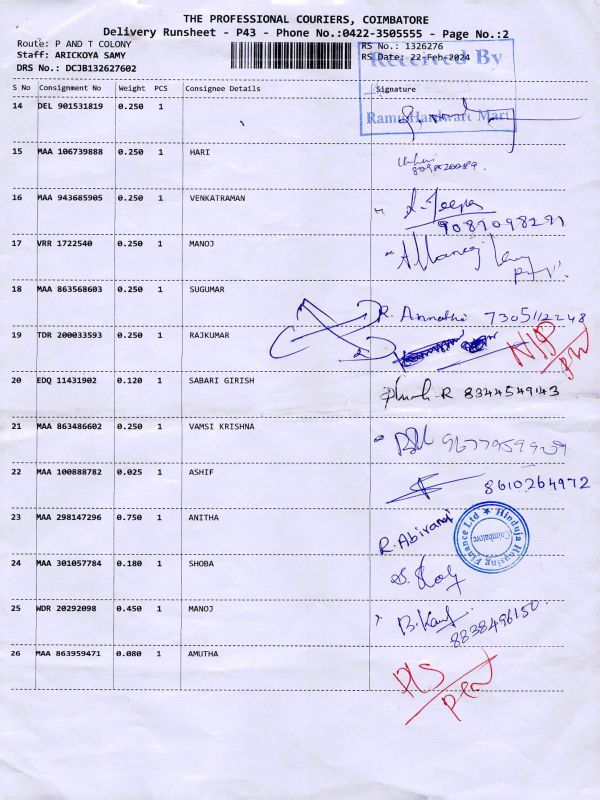 THE PROFESSIONAL COURIERS, COIMBATORE
Delivery Runsheet - P43 - Phone No.:0422-3505555 - Page No.:2
Route: P AND T COLONY
Staff: ARICKOYA SAMY
DRS No.: DCJB132627602
RS No.: 1326276
RS Date: 22-Feb-2024
Received By
Ramu Hardware Mart
S No Consignment No Weight PCS Consignee Details Signature
14 DEL 901531819 0.250 1
15 MAA 106739888 0.250 1 HARI
16 MAA 943685905 0.250 1 VENKATRAMAN
9087098291
17 VRR 1722540 0.250 1 MANOJ
18 MAA 863568603 0.250 1 SUGUMAR R. Annathi 7305112248
19 TDR 200033593 0.250 1 RAJKUMAR
20 EDQ 11431902 0.120 1 SABARI GIRISH R 8344549143
21 MAA 863486602 0.250 1 VAMSI KRISHNA
22 MAA 100888782 0.025 1 ASHIF 8610264972
23 MAA 298147296 0.750 1 ANITHA R. Abirami
Hinduja Housing Finance Ltd
Coimbatore
24 MAA 301057784 0.180 1 SHOBA
25 WDR 20292098 0.450 1 MANOJ
8838496150
26 MAA 863959471 0.080 1 AMUTHA